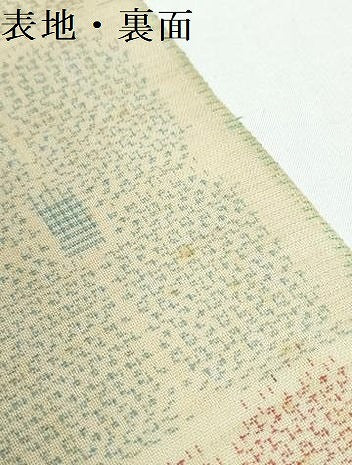 表地・裏面